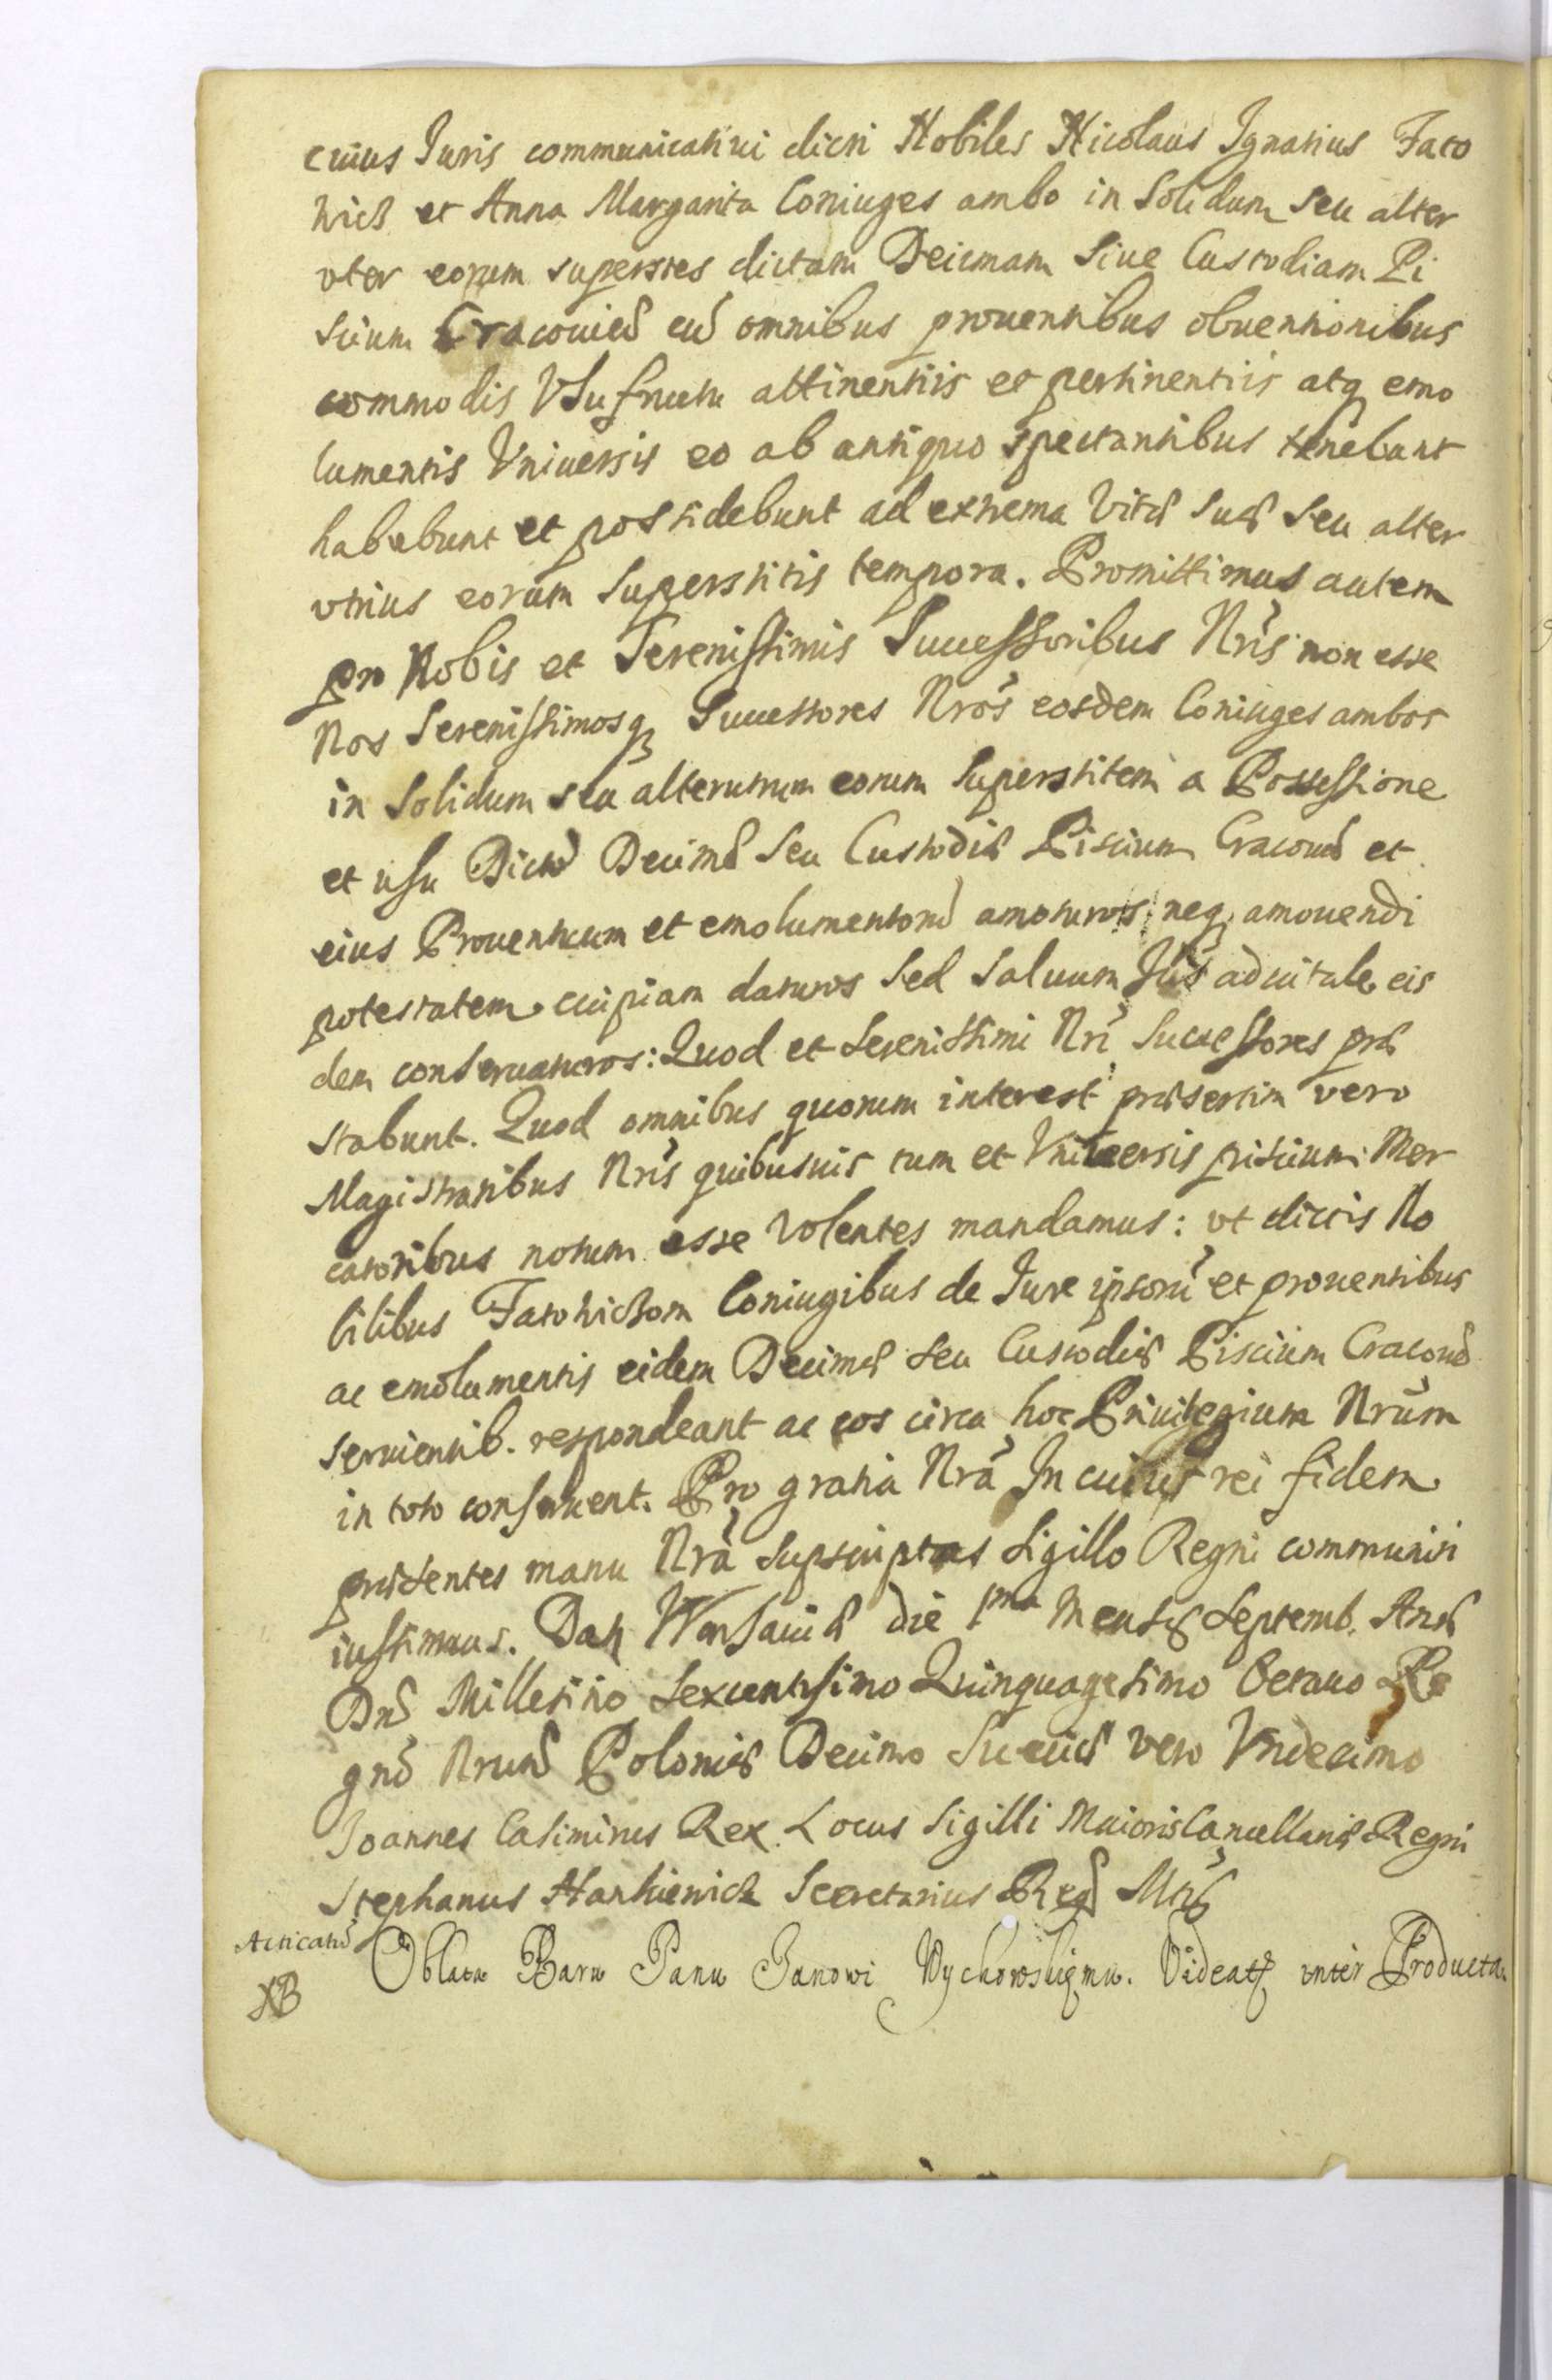 cuius Iuris communicatiui dicti Nobiles Nicolaus Ignatius Fato
wicz et Anna Margarita Coniuges ambo in Solidum seu alter
vter eorum superstes dictam Decimam siue Custodiam Pi
scium Cracouien cu omnibus prouentibus obuentionibus
commodis Vsufructu attinentiis et pertinentiis atq emo
lumentis Vniuersis eo ab antiquo spectantibus tenebunt
habebunt et possidebunt ad extrema Vitæ suæ seu alter
vtrius eorum Superstitis tempora. Promittimus autem
pro Nobis et Serenissimis Successoribus Nris non esse
Nos Serenissimosq Successores Nros eosdem Coniuges ambos
in Solidum seu alterutrum eorum Superstitem a Possessione
et usu Dictæ Decimæ seu Custodiæ Piscium Cracouien et
eius Prouentuum et emolumentoru amoturos neq amouendi
potestatem cuipiam daturos Sed Saluum Jus aduitale eis
dem conseruaturos: Quod et Serenissimi Nri Successores præ
stabunt. Quod omnibus quorum interest præsertim vero
Magistratibus Nris quibusuis tum et Vniuersis piscium Mer
catoribus notum esse Volentes mandamus: vt dictis No
bilibus Coniugibus de Iure ipsoru et prouentibus
ac emolumentis eidem Decimæ seu Custodiæ Piscium Cracouien
seruientib. respondeant ac eos circa hoc Priuilegium Nrum
in toto conseruent. Pro gratia Nra In cuius rei fidem
præsentes manu Nra supscriptas Sigillo Regni communiri
iussimus. Dat Warsauiæ die 1ma Mensis Septemb. Anno
Dni Millesimo Sexcentesimo Quinquagesimo Octauo Re
gnor Nrum Poloniæ Decimo Sueciæ vero Vndecimo
Joannes Casimirus Rex. Locus Sigilli Maioris Cancellariæ Regni
Stephanus Hankiewicz Secretarius Reg Mtis
Acticand Oblata Panu Janowi Wychowskiemu. Videatr inter Producta.
XB